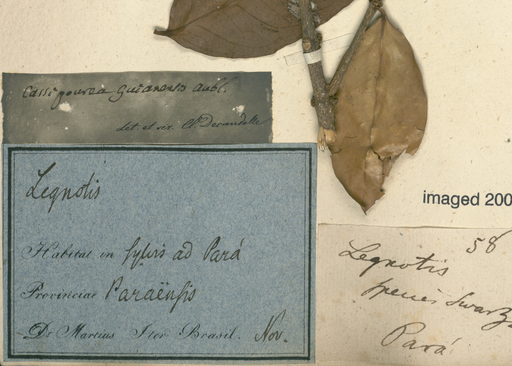 Cassipourea guianensis Aubl.
det. et scr. C. Decandolle
Legnotis
Habitat in sylvis ad Pará
Provinciae Paraënsis
Dr Martius Iter Brasil. Nov.
imaged 200
58
Legnotis
species Swartz
Pará